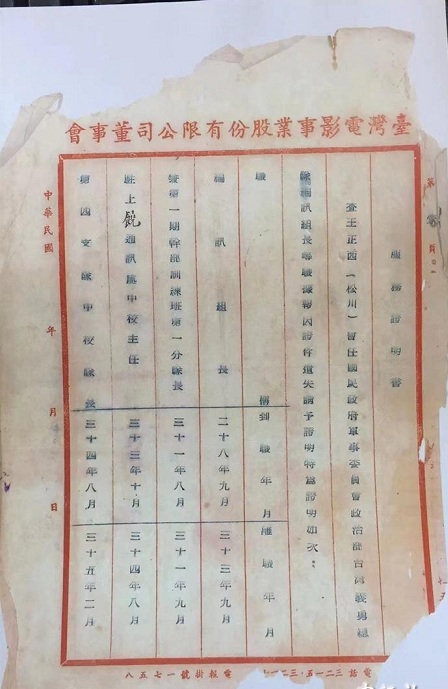 臺灣電影事業股份有限公司董事會
服務證明書
查王正西（松川）曾任國民政府軍事委員會政治部台灣義勇總
隊編訊組長等職茲據報因證件遺失請予證明特為證明如次：
職稱 到職年月 離職年月
編訊組長 二十八年九月 三十三年九月
發第一期幹部訓練班第一分隊長 三十一年八月 三十一年九月
駐上饒通訊處中校主任 三十三年十月 三十四年八月
第四支隊中校隊長 三十四年八月 三十五年二月
中華民國 年 月 日
電報掛號一七五八